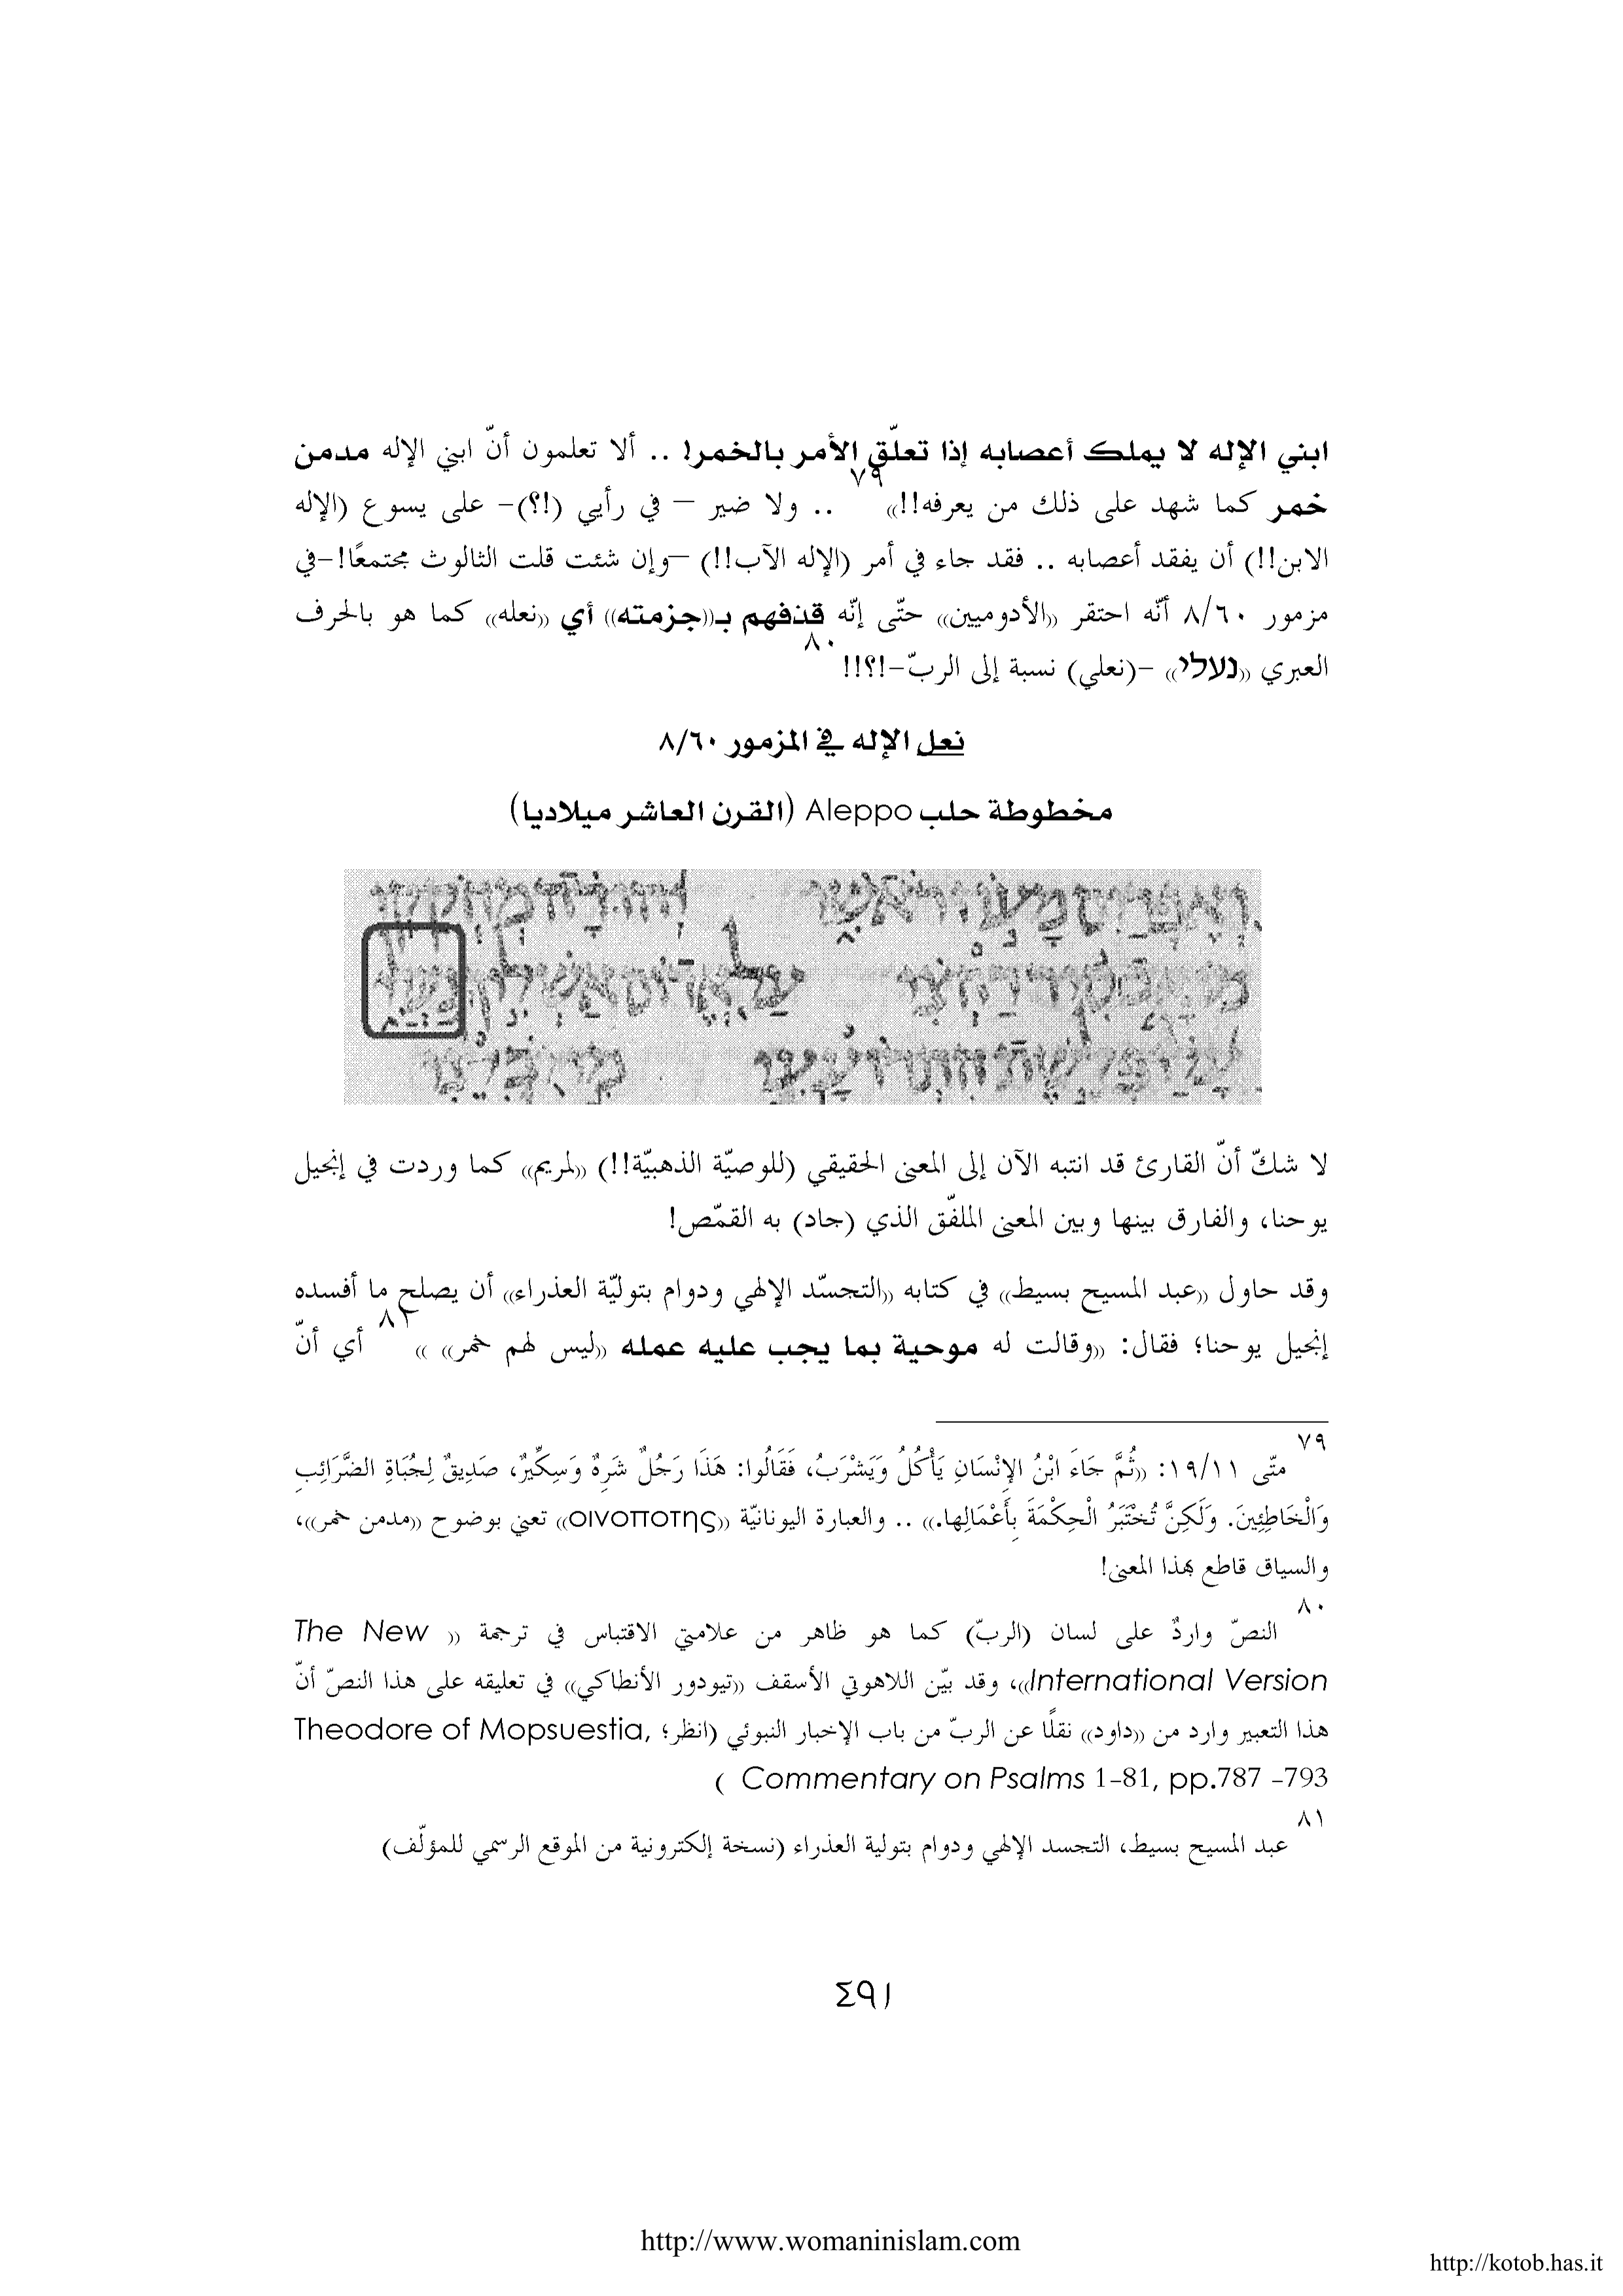 ابني الإله لا يملك أعصابه إذا تعلّق الأمر بالخمر! .. ألا تعلمون أنّ ابني الإله مدمن
خمر كما شهد على ذلك من يعرفه!!»٧٩ .. ولا ضير – في رأيي (!؟)- على يسوع (الإله
الابن!!) أن يفقد أعصابه .. فقد جاء في أمر (الإله الآب!!) –وإن شئت قلت الثالوث مجتمعًا!-في
مزمور ٨/٦٠ أنّه احتقر «الأدوميين» حتّى إنّه قذفهم بـ«جزمته» أي «نعله» كما هو بالحرف
العبري «נעלי» -(نعلي) نسبة إلى الربّ-!؟!!٨٠
نعل الإله في المزمور ٨/٦٠
مخطوطة حلب Aleppo (القرن العاشر ميلاديا)
لا شكّ أنّ القارئ قد انتبه الآن إلى المعنى الحقيقي (للوصيّة الذهبيّة!!) «لمريم» كما وردت في إنجيل
يوحنا، والفارق بينها وبين المعنى الملفّق الذي (جاد) به القمّص!
وقد حاول «عبد المسيح بسيط» في كتابه «التجسّد الإلهي ودوام بتوليّة العذراء» أن يصلح ما أفسده
إنجيل يوحنا؛ فقال: «وقالت له موحية بما يجب عليه عمله «ليس لهم خمر» »٨١ أي أنّ
٧٩ متّى ١٩/١١: «ثُمَّ جَاءَ ابْنُ الإِنْسَانِ يَأْكُلُ وَيَشْرَبُ، فَقَالُوا: هَذَا رَجُلٌ شَرِهٌ وَسِكِّيرٌ، صَدِيقٌ لِجُبَاةِ الضَّرَائِبِ
وَالْخَاطِئِينَ. وَلَكِنَّ تُخْتَبَرُ الْحِكْمَةَ بِأَعْمَالِهِا.» .. والعبارة اليونانيّة «οινοποτης» تعني بوضوح «مدمن خمر»،
والسياق قاطع بهذا المعنى!
٨٠ النصّ واردٌ على لسان (الربّ) كما هو ظاهر من علامتي الاقتباس في ترجمة « The New
International Version»، وقد بيّن اللاهوتي الأسقف «تيودور الأنطاكي» في تعليقه على هذا النصّ أنّ
هذا التعبير وارد من «داود» نقلًا عن الربّ من باب الإخبار النبوئي (انظر؛ Theodore of Mopsuestia,
Commentary on Psalms 1-81, pp.787 -793 )
٨١ عبد المسيح بسيط، التجسد الإلهي ودوام بتولية العذراء (نسخة إلكترونية من الموقع الرسمي للمؤلّف)
٤٩١
http://www.womaninislam.com
http://kotob.has.it